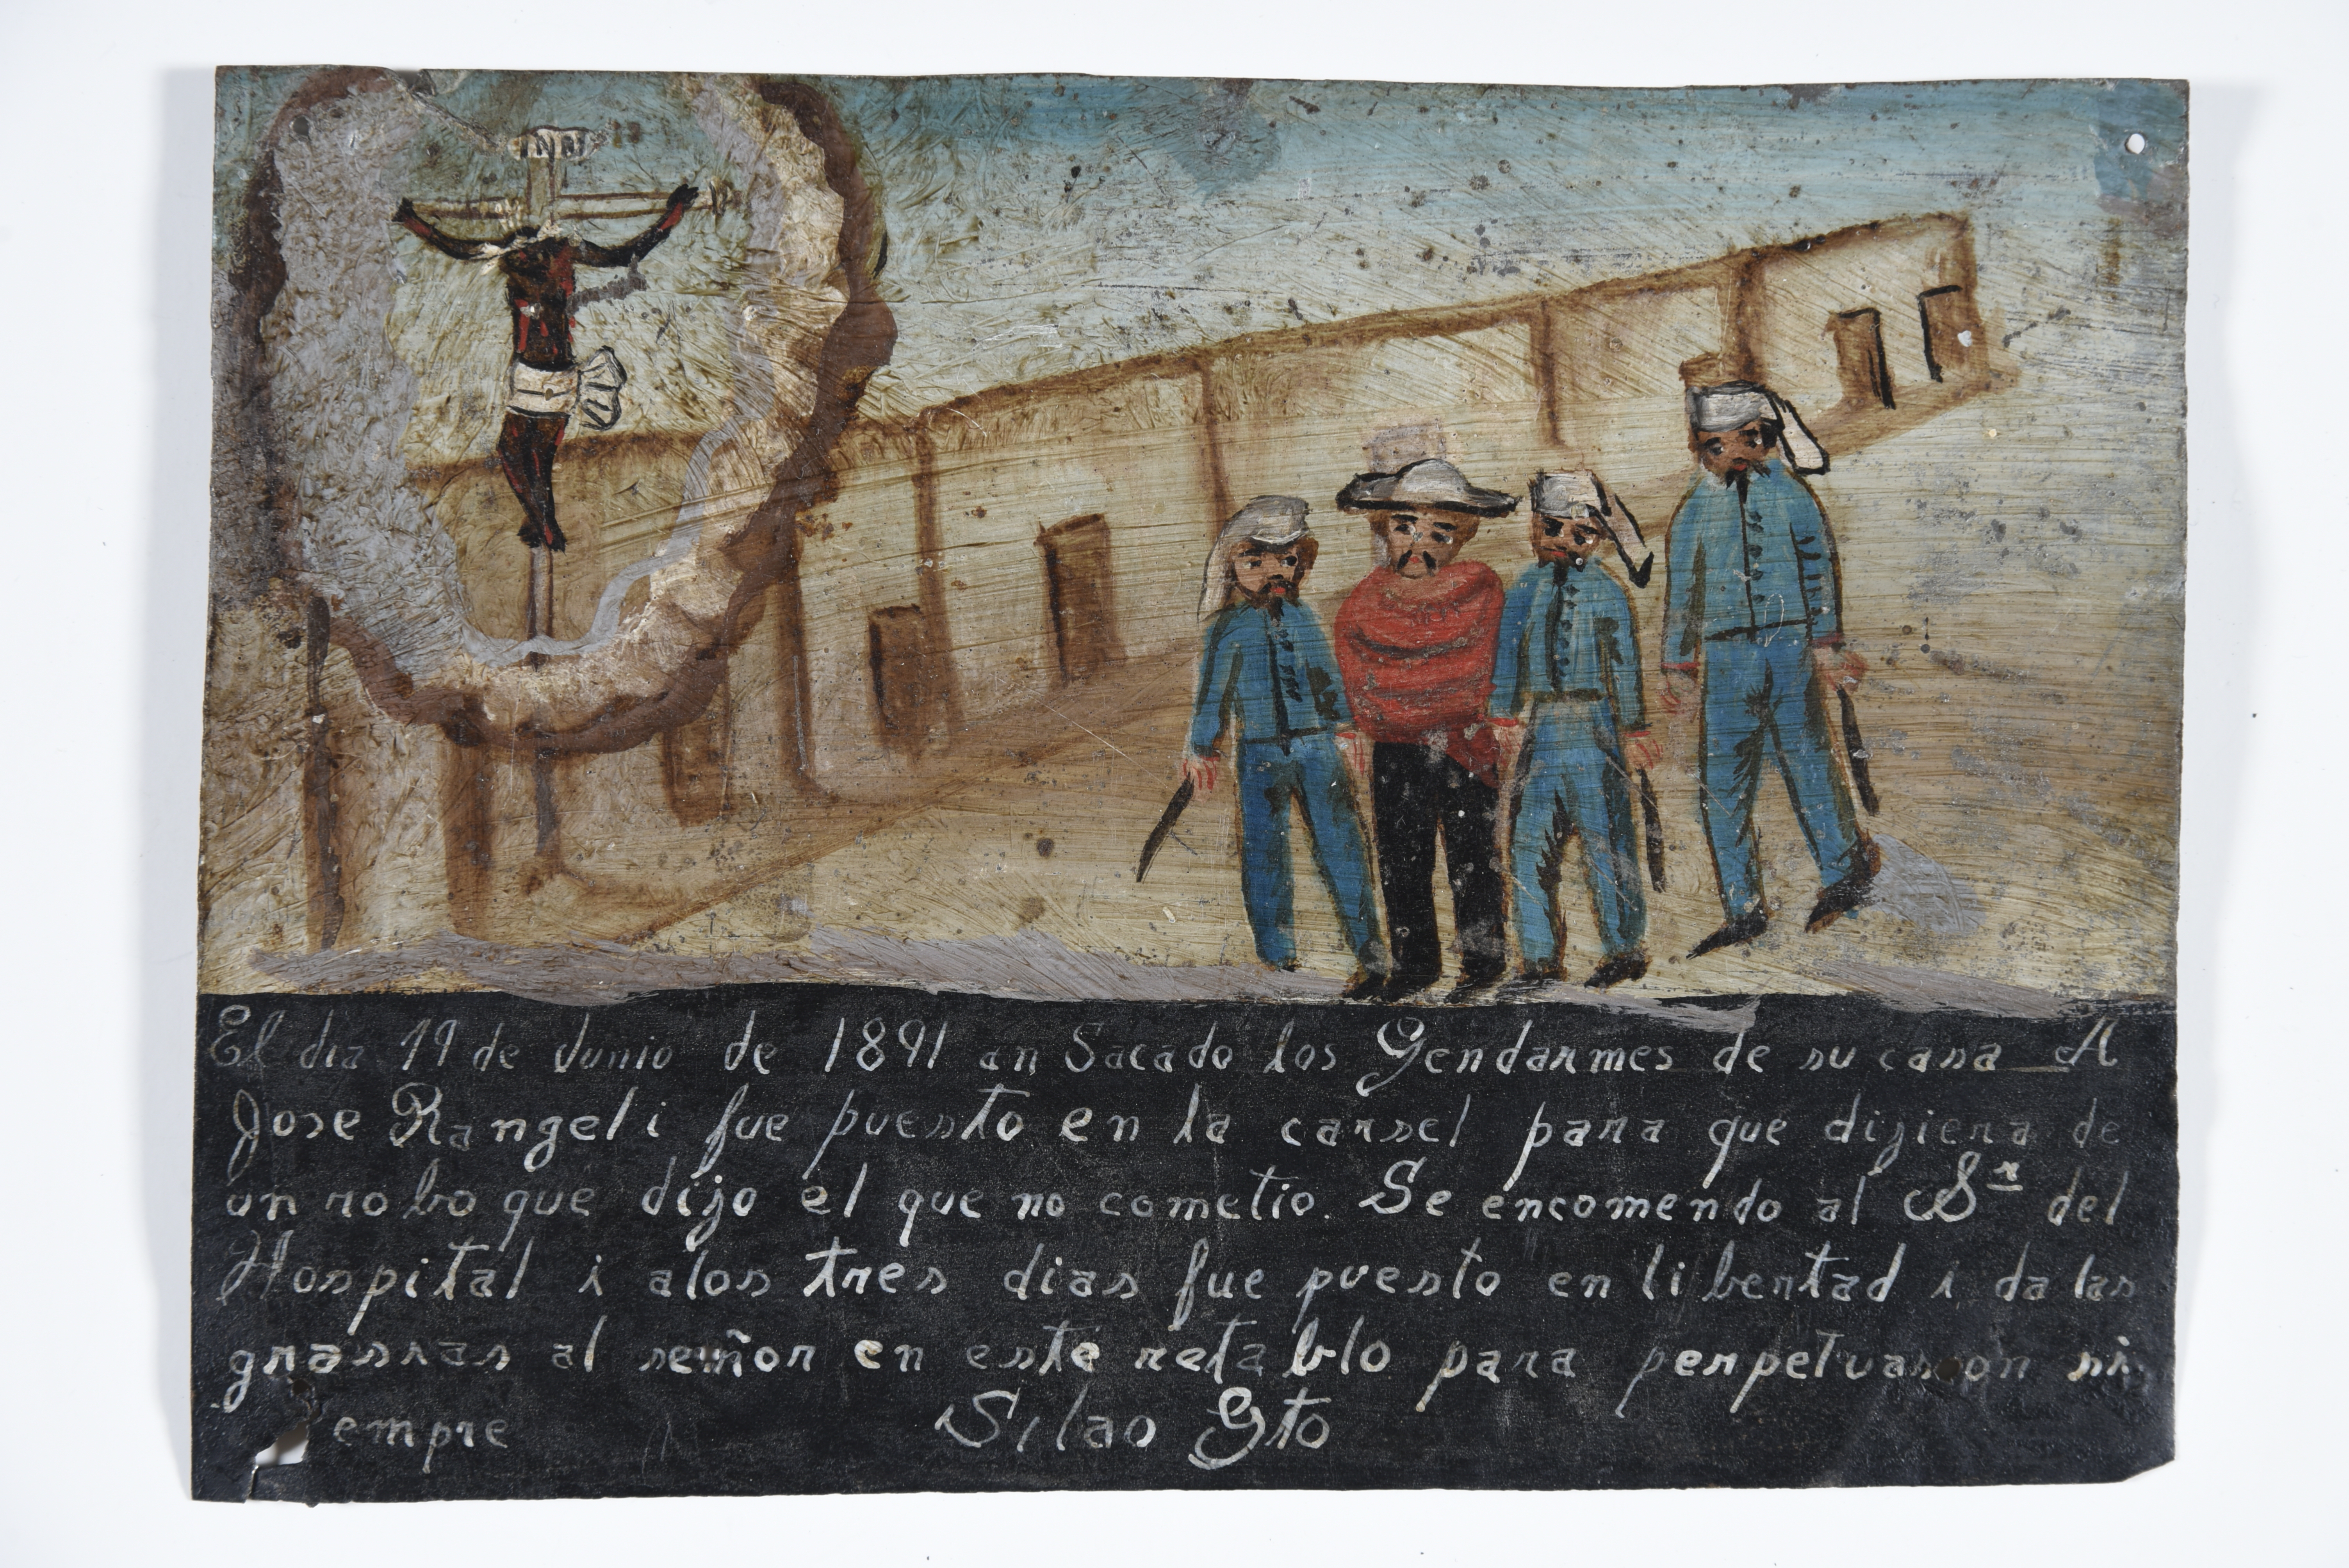 INRI
El dia 19 de Junio de 1891 an Sacado los Gendarmes de su casa A
Jose Rangel i fue puesto en la carsel para que dijiera de
un robo que dijo el que no cometio. Se encomendo al Sr del
Hospital i alos tres dias fue puesto en libertad i da las
grasias al señor en este retablo para perpetuasion si
empre Silao Gto